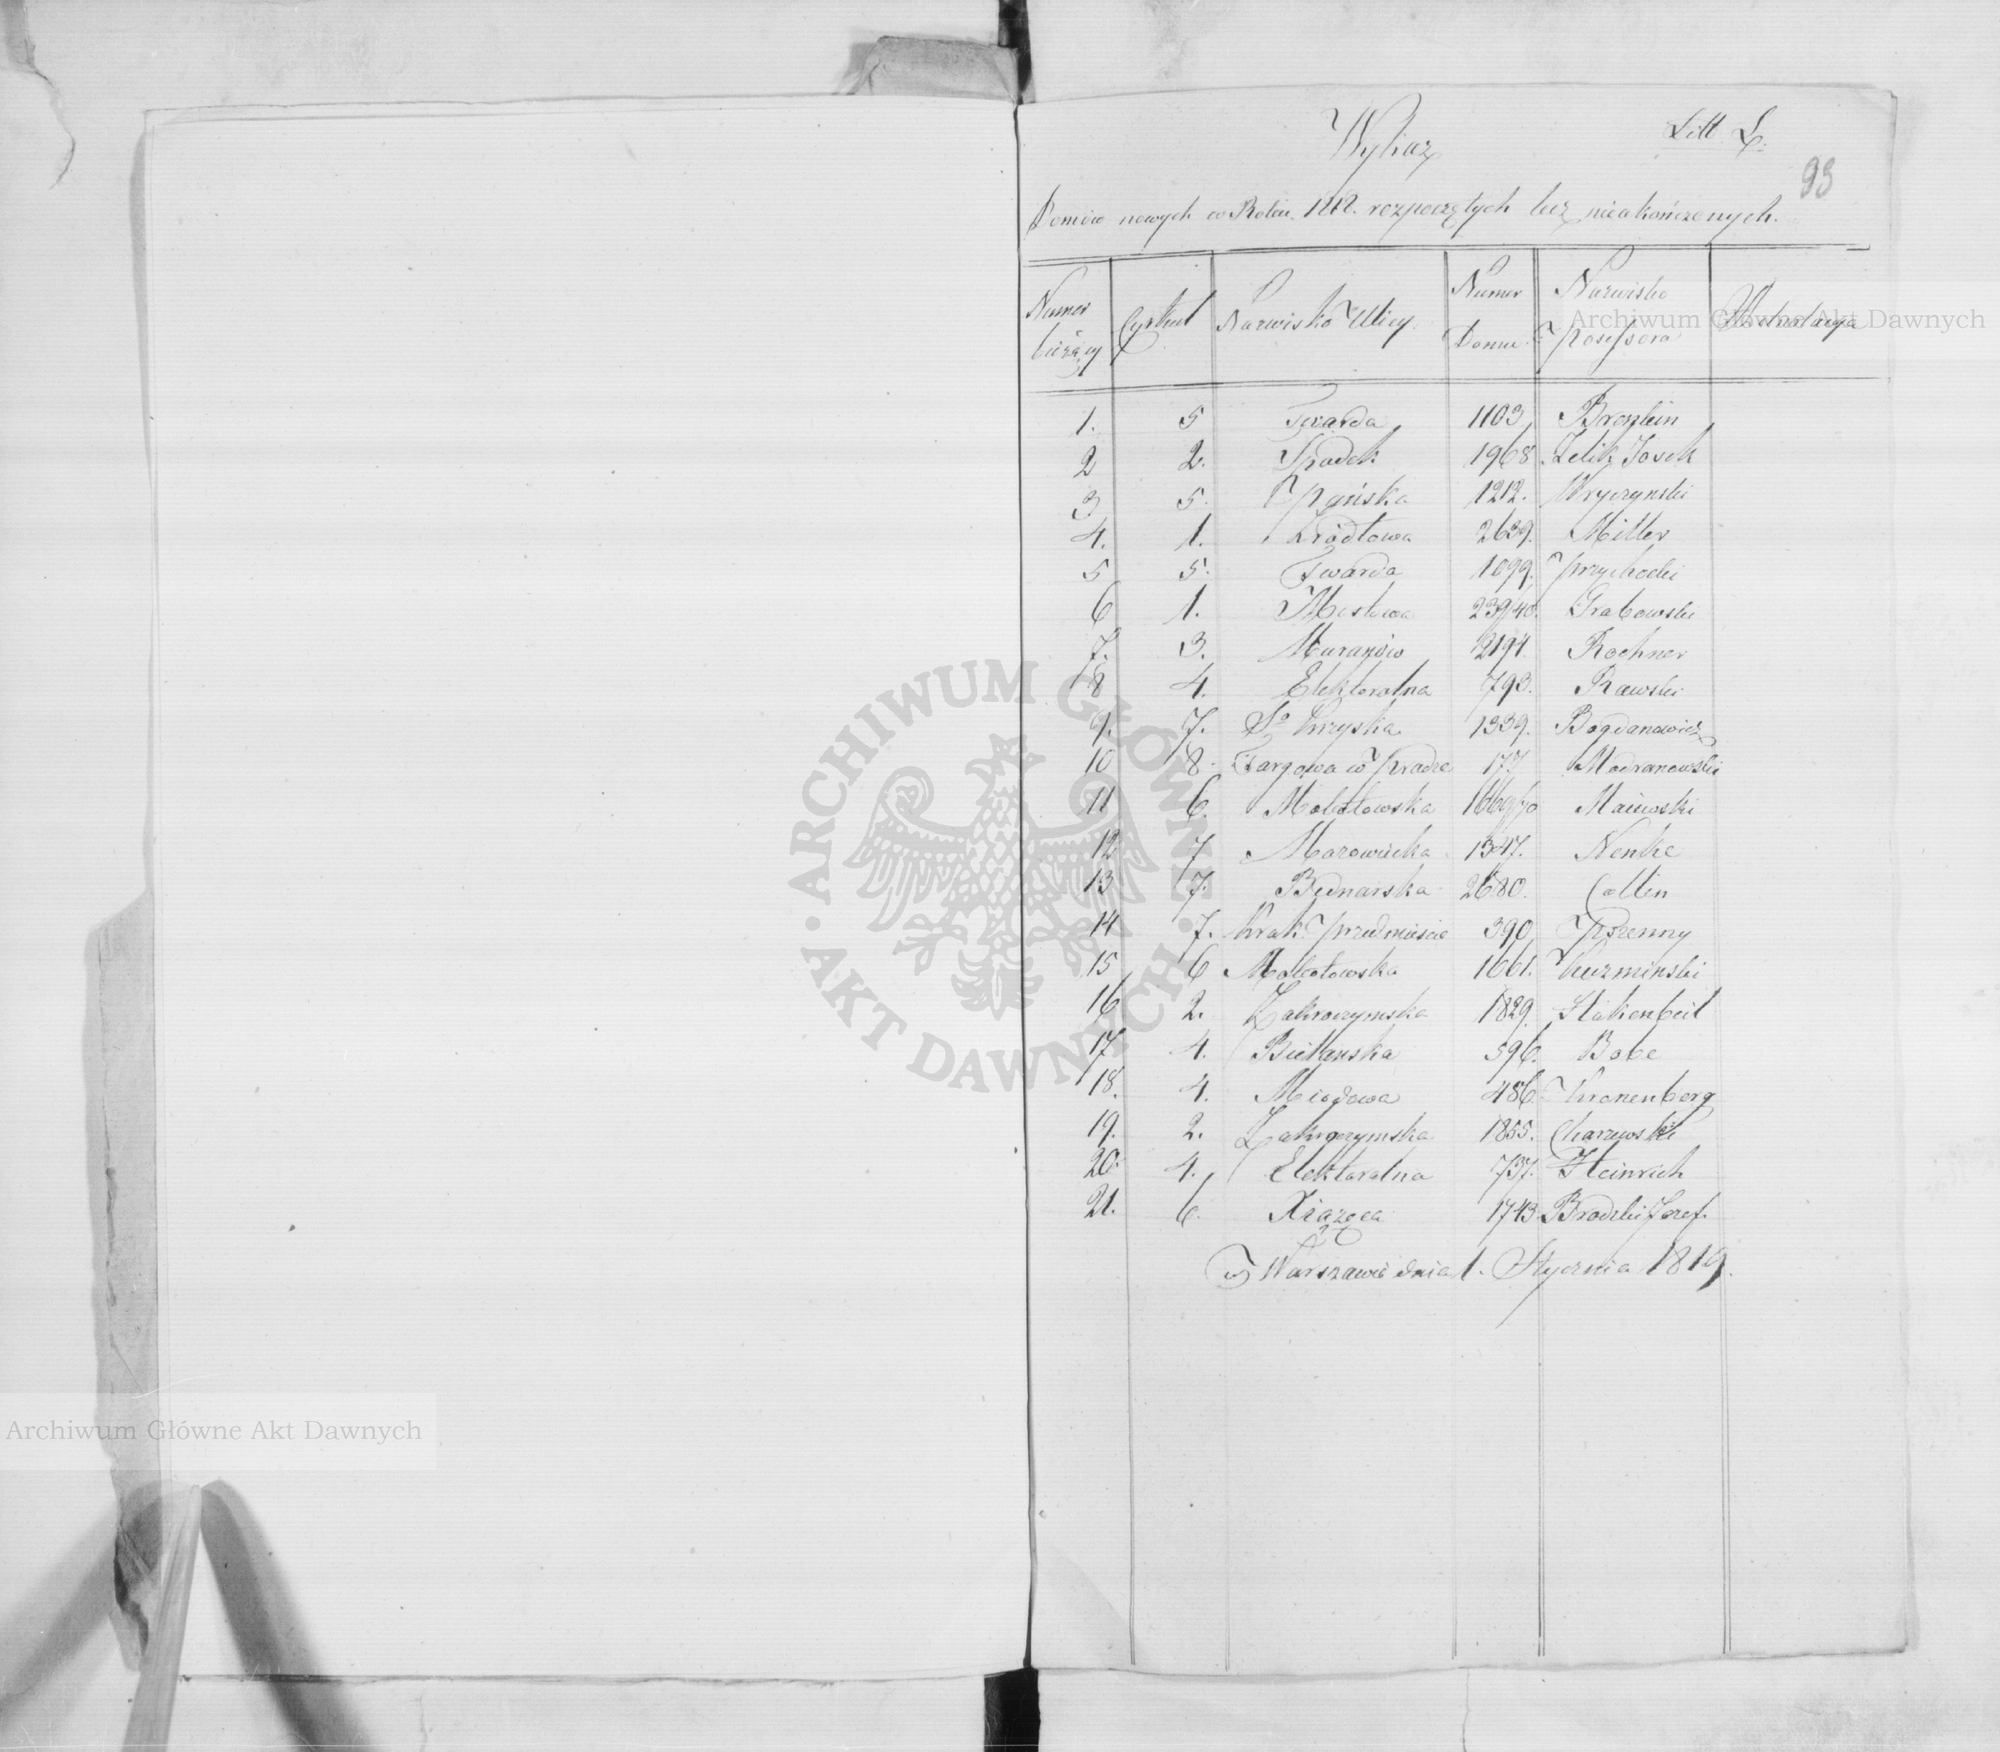 Wykaz
Litt L.
93
Domów nowych w Roku 1818. rozpoczętych lecz nieukończonych.
Numer bieżący Cyrkuł Nazwisko Ulicy Numer Domu Nazwisko Posessora
1. 5 Twarda 1103
2 2. Spadek 1968 Zelik Josek
3 5. Pańska 1212.
4. 1. Zródłowa 2639. Miller
5 5. Twarda 1099. Przychocki
6 1. Mostowa 239/40. Grabowski
7. 3. Muranów 2194. Rochner
8 4. Elektoralna 793. Rawski
9. 7. So Krzyska 1339. Bogdanowicz
10 8. Targowa w Pradze 177 Modranowski
11 6. Mokotowska 1669/70 Maiewski
12 7 Mazowiecka 1347. Nenke
13 7. Bednarska 2680. Collin
14 7. Krak. Przedmieście 390 Pszenny
15 6 Mokotowska 1661. Kuzminski
16 2. Zakroczymska 1829. Stakenbeil
17 4. Bielanska 596. Bobe
18. 4. Miodowa 486. Kronenberg
19. 2. Zakroczymska 1855. Charzewski
20. 4. Elektoralna 737. Heinrich
21. 6. Xiążęca 1743 Brodzki Jozef.
w Warszawie dnia 1. Stycznia 1819.
Archiwum Główne Akt Dawnych
ARCHIWUM GŁÓWNE AKT DAWNYCH
Archiwum Główne Akt Dawnych